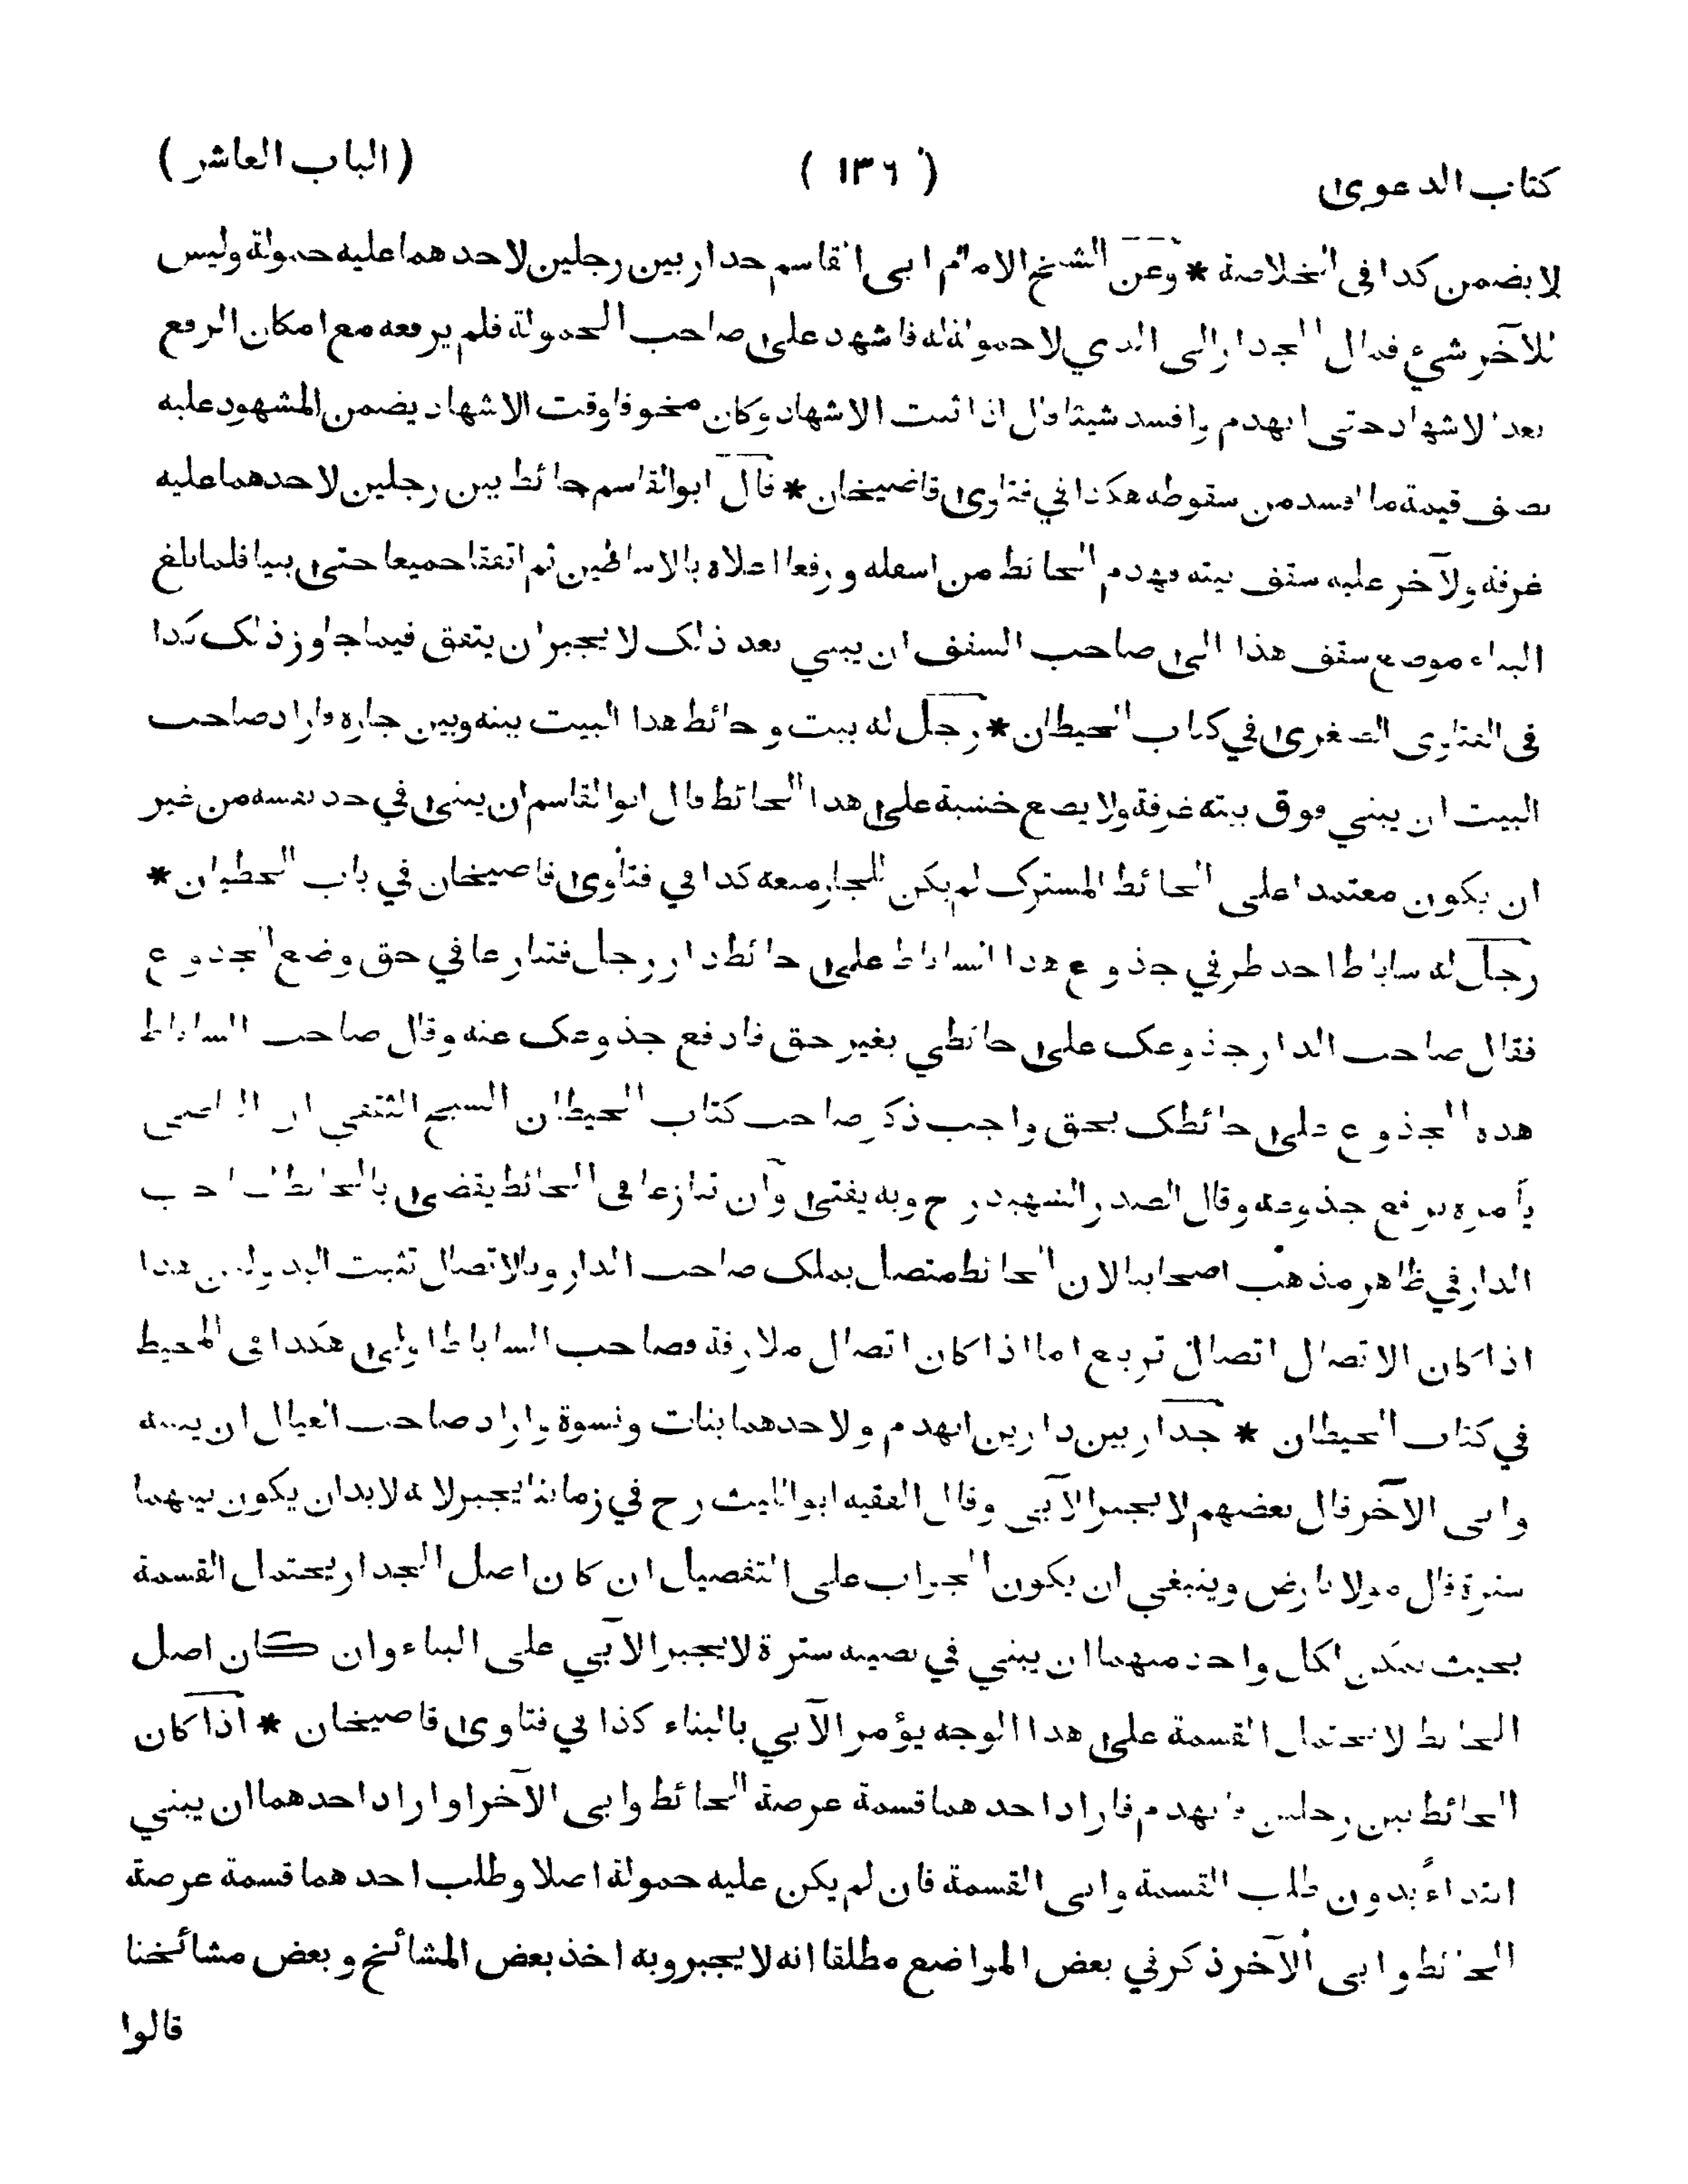 كتاب الدعوى ( ١٣٦ ) ( الباب العاشر )
لا يضمن كذا في الخلاصة * وعن الشيخ الامام ابى القاسم جدار بين رجلين لاحدهما عليه حمولة وليس
للآخر شيء فمال الجدار الى الذي لا حمولة له فاشهد على صاحب الحمولة فلم يرفعه مع امكان الرفع
بعد الاشهاد حتى انهدم وافسد شيئا قال اذا ثبت الاشهاد وكان مخوفا وقت الاشهاد يضمن المشهود عليه
نصف قيمة ما افسد من سقوطه هكذا في فتاوى قاضيخان * قال ابو القاسم حائط بين رجلين لاحدهما عليه
غرفة ولآخر عليه سقف بيته فهدم الحائط من اسفله ورفعا اعلاه بالاساطين ثم اتفقا جميعا حتى بنيا فلما بلغ
البناء موضع سقف هذا ابى صاحب السقف ان يبنى بعد ذلك لا يجبر ان يتفق فيما جاوز ذلك كذا
في الفتاوى الصغرى في كتاب الحيطان * رجل له بيت وحائط هذا البيت بينه وبين جاره فاراد صاحب
البيت ان يبني فوق بيته غرفة ولا يضع خشبة على هذا الحائط قال ابو القاسم ان بنى في حد نفسه من غير
ان يكون معتمدا على الحائط المشترك لم يكن للجار منعه كذا في فتاوى قاضيخان في باب الحيطان *
رجل له ساباط احد طرفي جذوع هذا الساباط على حائط دار رجل فتنازعا في حق وضع الجذوع
فقال صاحب الدار جذوعك على حائطي بغير حق فارفع جذوعك عنه وقال صاحب الساباط
هذه الجذوع على حائطك بحق واجب ذكر صاحب كتاب الحيطان الشيخ الثقفي ان القاضى
يأمره برفع جذوعه وقال الصدر الشهيد رح وبه يفتى وان تنازعا في الحائط يقضى بالحائط لصاحب
الدار في ظاهر مذهب اصحابنا لان الحائط متصل بملك صاحب الدار وبالاتصال تثبت اليد ولكن هذا
اذا كان الاتصال اتصال تربيع اما اذا كان اتصال ملازقة فصاحب الساباط اولى هكذا في المحيط
في كتاب الحيطان * جدار بين دارين انهدم ولاحدهما بنات ونسوة واراد صاحب العيال ان يبنيه
وابى الآخر قال بعضهم لا يجبر الآبي وقال الفقيه ابو الليث رح في زماننا يجبر لانه لابد ان يكون بينهما
سترة قال مولانا رض وينبغي ان يكون الجواب على التفصيل ان كان اصل الجدار يحتمل القسمة
بحيث يمكن لكل واحد منهما ان يبني في نصيبه سترة لا يجبر الآبي على البناء وان كان اصل
الحائط لا يحتمل القسمة على هذا الوجه يؤمر الآبي بالبناء كذا في فتاوى قاضيخان * اذا كان
الحائط بين رجلين فانهدم فاراد احدهما قسمة عرصة الحائط وابى الآخر او اراد احدهما ان يبني
ابتداءً بدون طلب القسمة وابى القسمة فان لم يكن عليه حمولة اصلا وطلب احدهما قسمة عرصة
الحائط وابى الآخر ذكر في بعض المواضع مطلقا انه لا يجبر وبه اخذ بعض المشائخ وبعض مشائخنا
قالوا